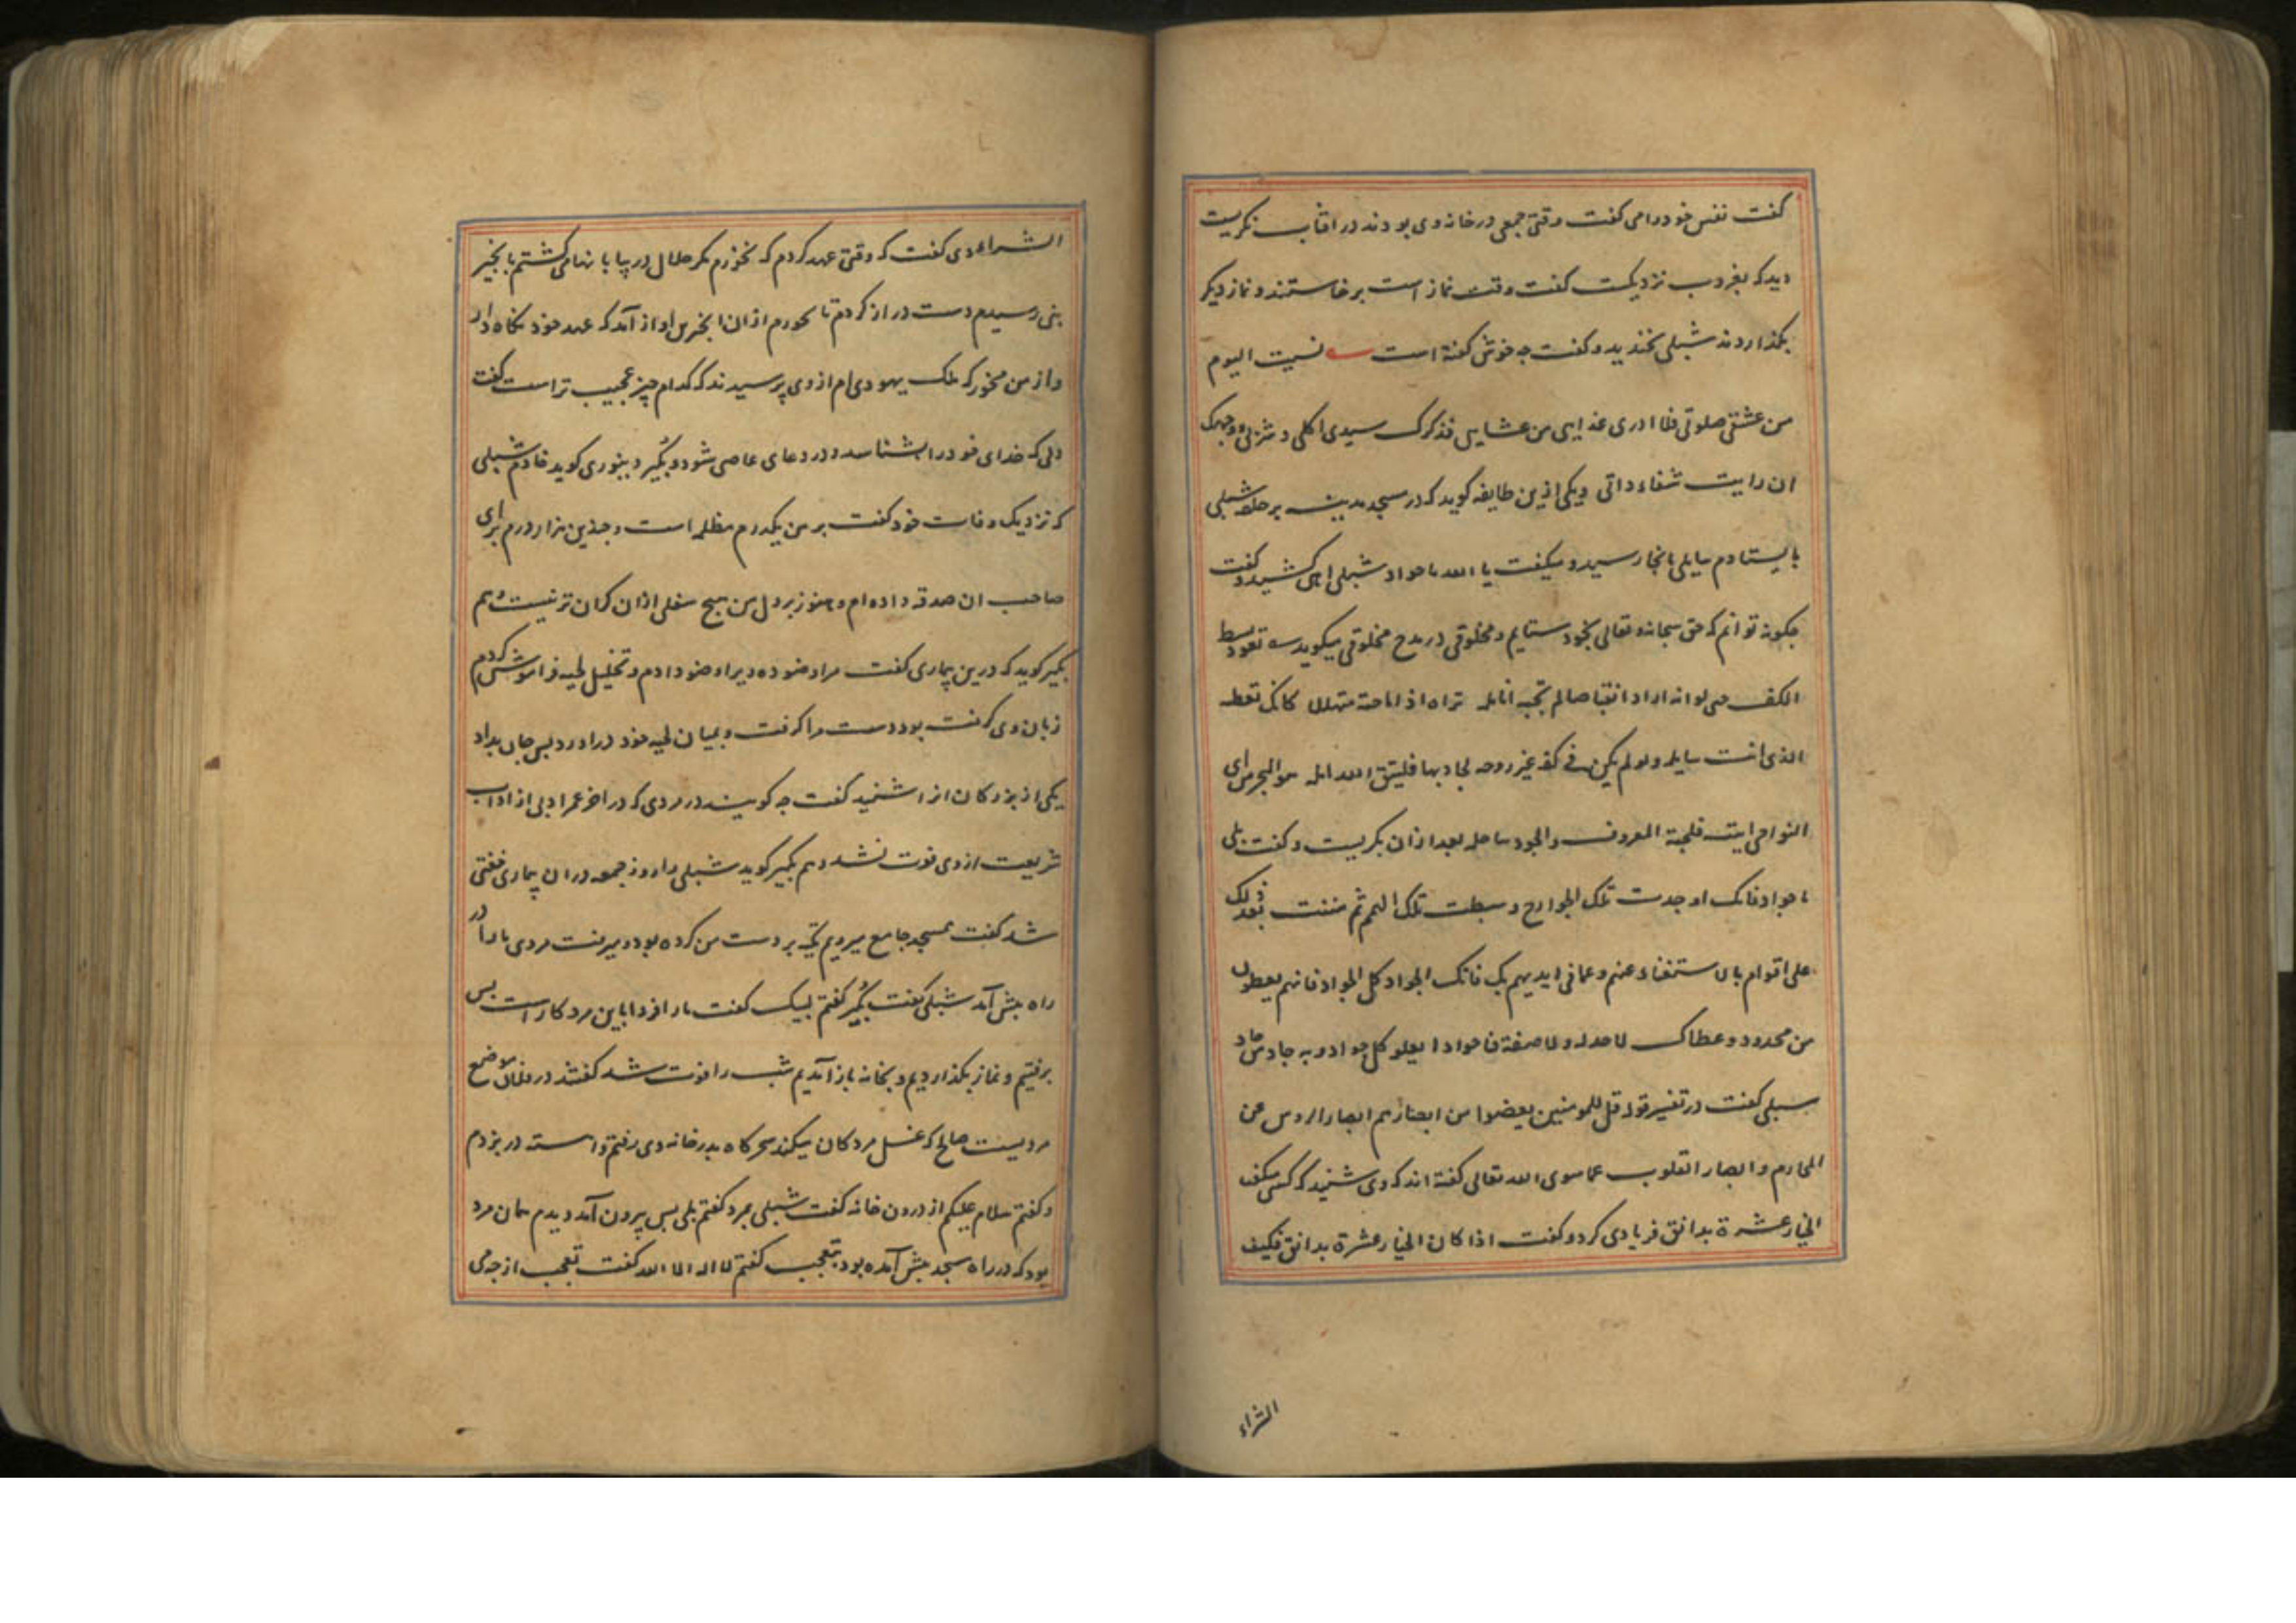 گفت نفس خود را می گفت وقتی جمعی در خانه وی بودند در افتاب نکریست
دید که بغروب نزدیکست گفت وقت نماز است برخاستند و نماز دیکر
بگذاردند شبلی بخندید و گفت چه خوش گفته است نسیت الیوم
من عشقی صلوتی فلا ادری غذایی من عشایی فذکرک سیدی اکلی و شربی و وجهک
ان رایت شفاء دائی و یکی ازین طایفه کوید که در مسجد مدینه بر حلقه شبلی
بایستادم سایلی بانجا رسید و میکفت یا الله یا جواد شبلی اهی کشید و گفت
چکونه توانم که حق سبحانه و تعالی بجود ستایم و مخلوقی در مدح مخلوقی میکوید تعود بسط
الکف حتی لو انه اراد انقباضا لم تجبه انامله تراه اذا ما جئته متهللا کانک تعطه
الذی انت سایله ولو لم یکن فی کفه غیر روحه لجاد بها فلیتق الله سایله هو البحر من ای
النواحی اتیته فلجته المعروف والجود ساحله بعد ازان بکریست و گفت بلی
یا جواد فانک اوجدت تلک الجوارح و بسطت تلک الهمم ثم مننت بعد ذلک
علی اقوام بالاستغناء عنهم و عما فی ایدیهم بک فانک الجواد کل الجواد فانهم یعطون
من محدود و عطاک لا حد له ولا صفة فیا جوادا یعلو کل جواد و به جاد من جاد
شبلی گفت در تفسیر قوله قل للمومنین یغضوا من ابصارهم ابصار الروس عن
المحارم و ابصار القلوب عما سوی الله تعالی گفته اند که وی شنید که کسی میکفت
الخیار عشرة بدانق فریادی کرد و گفت اذا کان الخیار عشرة بدانق فکیف
الشراء
الشراء وی گفت که وقتی عهد کردم که نخورم مکر حلال در بیابانها می کشتم بانجیر
بنی رسیدم دست دراز کردم تا بخورم ازان انجیر بن اواز آمد که عهد خود نکاه دار
و از من مخور که ملک یهودی ام از وی پرسیدند که کدام چیز عجیب تر است گفت
دلی که خدای خود را بشناسد و در وی عاصی شود و بکیر دینوری کوید خادم شبلی
که نزدیک وفات خود گفت بر من یکدرم مظلمه است و چندین هزار درم برای
صاحب ان صدقه داده ام و هنوز بر دل من هیچ شغلی ازان کران تر نیست و هم
بکیر کوید که درین بیماری گفت مرا وضو ده ویرا وضو دادم و تخلیل لحیه فراموش کردم
زبان وی گرفته بود دست مرا کرفت و بمیان لحیه خود دراورد پس جان بداد
یکی از بزرکان انرا شنید گفت چه کویند در مردی که در اخر عمر ادبی از اداب
شریعت از وی فوت نشد و هم بکیر کوید شبلی را روز جمعه دران بیماری خفتی
شد گفت بمسجد جامع میرویم تکیه بر دست من کرده بود و میرفت مردی ما را در
راه پیش آمد شبلی گفت بکیر گفتم لبیک گفت ما را فردا باین مرد کار است پس
برفتیم و نماز بگذاردیم و بخانه باز آمدیم شب را فوت شد گفتند در فلان موضع
مردیست صالح که غسل مردکان میکند سحرکاه بدر خانه وی رفتم و اهسته در بزدم
و گفتم سلام علیکم از درون خانه گفت شبلی بمرد گفتم بلی پس بیرون آمد دیدم همان مرد
بود که در راه مسجد پیش آمده بود بتعجب گفتم لا اله الا الله گفت تعجب از چه می